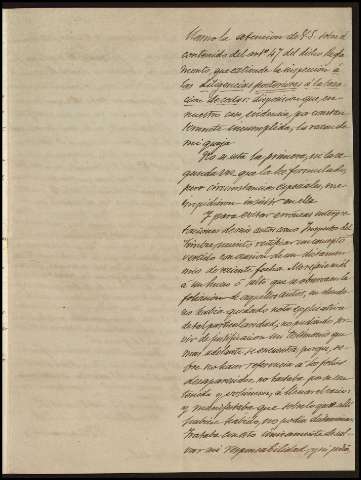 Llamo la atención de V.S. sobre el
contenido del artº 47 del dicho Regla
mento, que extiende la disposición á
las diligencias posteriores á la tasa
ción de costas: disposición que, en
nuestro caso, evidencia, ya constan
temente incumplida, la razón de
mi queja.
No es esta la primera, ni la se
gunda vez que la he formulado,
pero circunstancias especiales, me
impidieron insistir en ella.
Y para evitar erróneas interpre
taciones de mis actos como Inspector del
Timbre, necesito rectificar un concepto
vertido con ocasión de un dictamen
mío de reciente fecha. Me refería en él
á un hueco ó salto que se observa en la
foliación de aquellos autos, en donde
no había quedado nota explicativa
de tal particularidad, no pudiendo ser
vir de justificación un testimonio que
mas adelante se encuentra porque, so
bre no hacer referencia á los folios
desaparecidos, no bastaba por su con
tenido y extensión, á llenar el vacío:
y manifestaba que sobre lo que allí
hubiera habido, no podía dictaminar.
Trataba con esto únicamente de sal
var mi responsabilidad, y ni podía